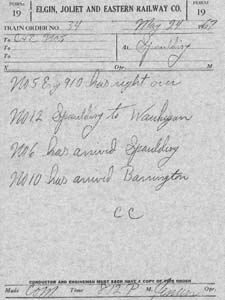 FORM 19
ELGIN, JOLIET AND EASTERN RAILWAY CO.
FORM 19
TRAIN ORDER NO. 34 May 24
To C&E No 5 At Spaulding
To
X Opr. M
No 5 Eng 910 has right over
No 12 Spaulding to Waukegan
No 6 has arrived Spaulding
No 10 has arrived Barrington
CC
CONDUCTOR AND ENGINEMAN MUST EACH HAVE A COPY OF THIS ORDER
Made Com Time 812 P M. Opr.